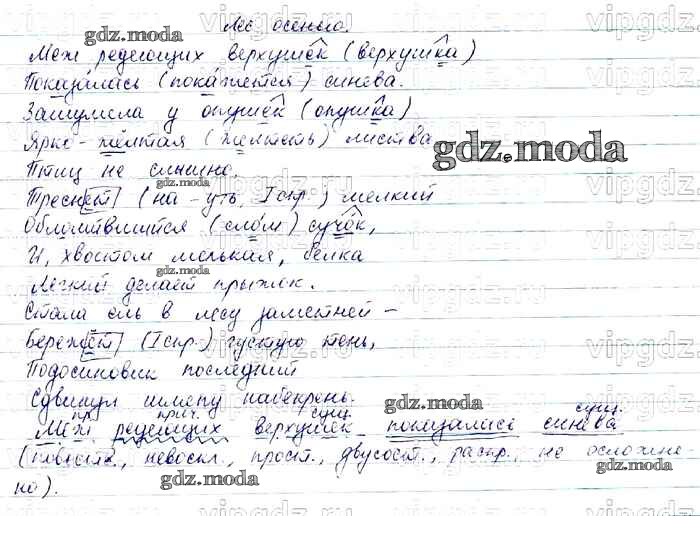 Лес осенью.
Меж редеющих верхушек (верхушка)
Показалась (покажется) синева.
Зашумела у опушек (опушка)
Ярко-жёлтая (желтеть) листва
Птиц не слышно.
Треснет (на -уть, I спр.) мелкий
Обломившийся (слом) сучок,
И, хвостом мелькая, белка
Лёгкий делает прыжок.
Стала ель в лесу заметней –
Бережёт (I спр.) густую тень,
Подосиновик последний
Сдвинул шляпу набекрень.
пр. прич. сущ. сущ.
Меж редеющих верхушек показалась синева
(повеств., невоскл., прост., двусост., распр., не осложне-
но).
gdz.moda
vipgdz.ru